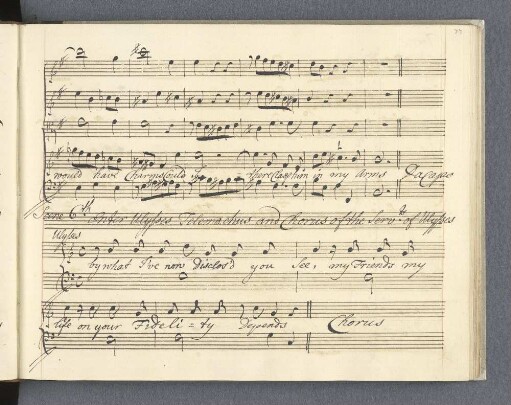 would have Charms Could I there Clasp him in my Arms Da Capo
Scene 6th Enter Ulysses Telemachus and Chorus of the Servts of Ulysses
Ulysses
by what I've now Disclos'd you See, my Friends my
life on your Fideli=ty Depends Chorus